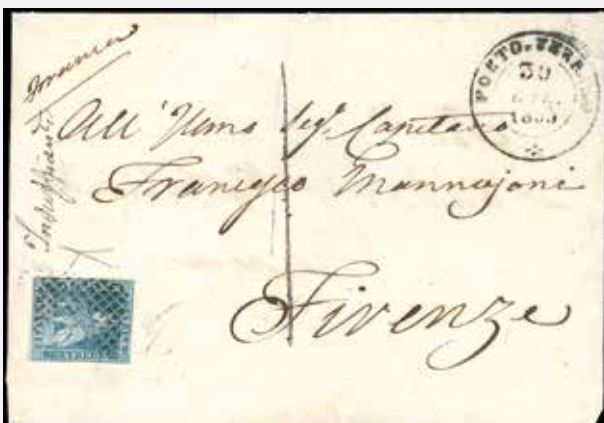 Franca
Insufficiente
PORTO FERR
30
185
All' Illmo Sigr. Capitano
Francesco Mannajoni
Firenze